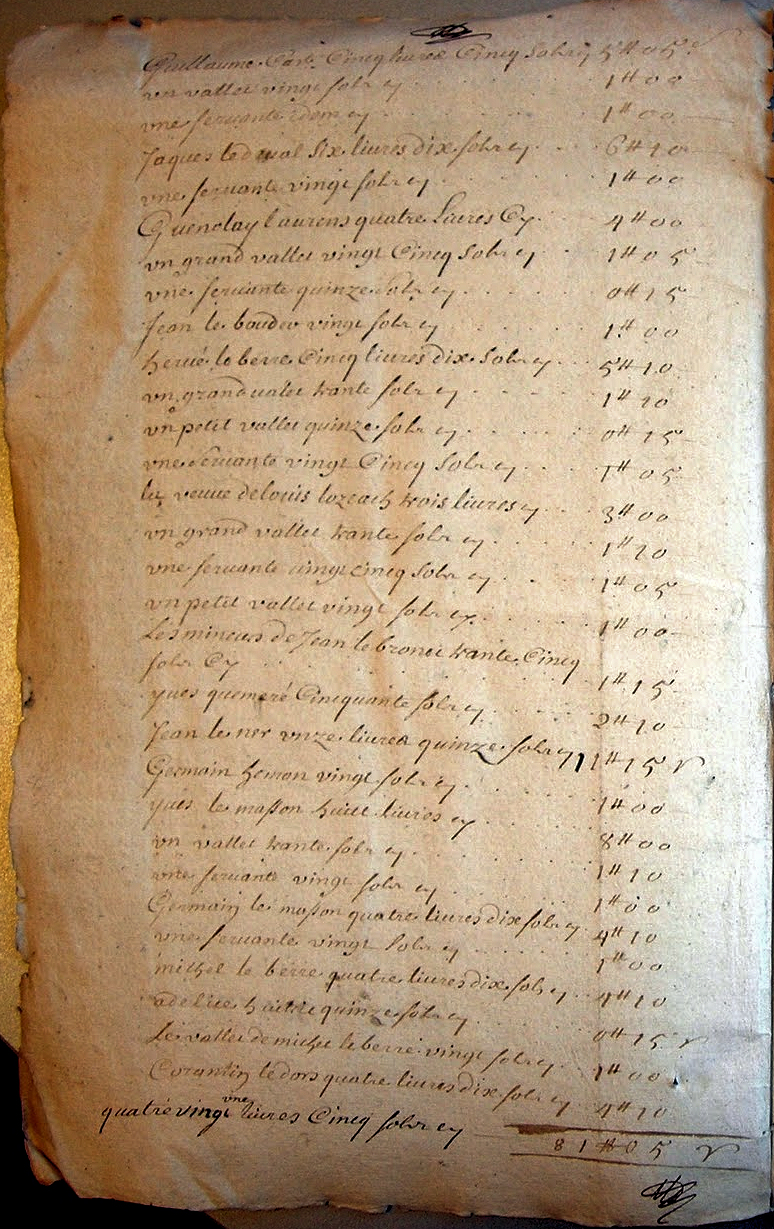 Guillaume Cinq livres Cinq solz cy 5# 05s
vn vallet vingt solz cy 1# 00
vne servante idem cy 1# 00
Jaques ledual six livres dix solz cy 6# 10
vne servante vingt solz cy 1# 00
Guenolay laurens quatre livres Cy 4# 00
vn grand vallet vingt Cinq solz cy 1# 05
vne servante quinze solz cy 0# 15
Jean le baudev vingt solz cy 1# 00
hervé le berre Cinq livres dix solz cy 5# 10
vn grand valet trante solz cy 1# 10
vn petit vallet quinze solz cy 0# 15
vne servante vingt Cinq solz cy 1# 05
la veuve de louis lozeach trois livres cy 3# 00
vn grand vallet trante solz cy 1# 10
vne servante vingt cinq solz cy 1# 05
vn petit vallet vingt solz cy 1# 00
Les mineurs de Jean le bronec trante Cinq
solz Cy 1# 15
yves quemeré Cincquante solz cy 2# 10
Jean le ner vnze livres quinze solz cy 11# 15
Germain hemon vingt solz cy 1# 00
yves le masson huict livres cy 8# 00
vn vallet trante solz cy 1# 10
vne servante vingt solz cy 1# 00
Germain le masson quatre livres dix solz cy 4# 10
vne servante vingt solz cy 1# 00
michel le berre quatre livres dix solz cy 4# 10
quinze solz cy 0# 15
Le vallet de michel le berre vingt solz cy 1# 00
Corantin ledors quatre livres dix solz cy 4# 10
quatre vingt vne livres Cinq solz cy 81# 05